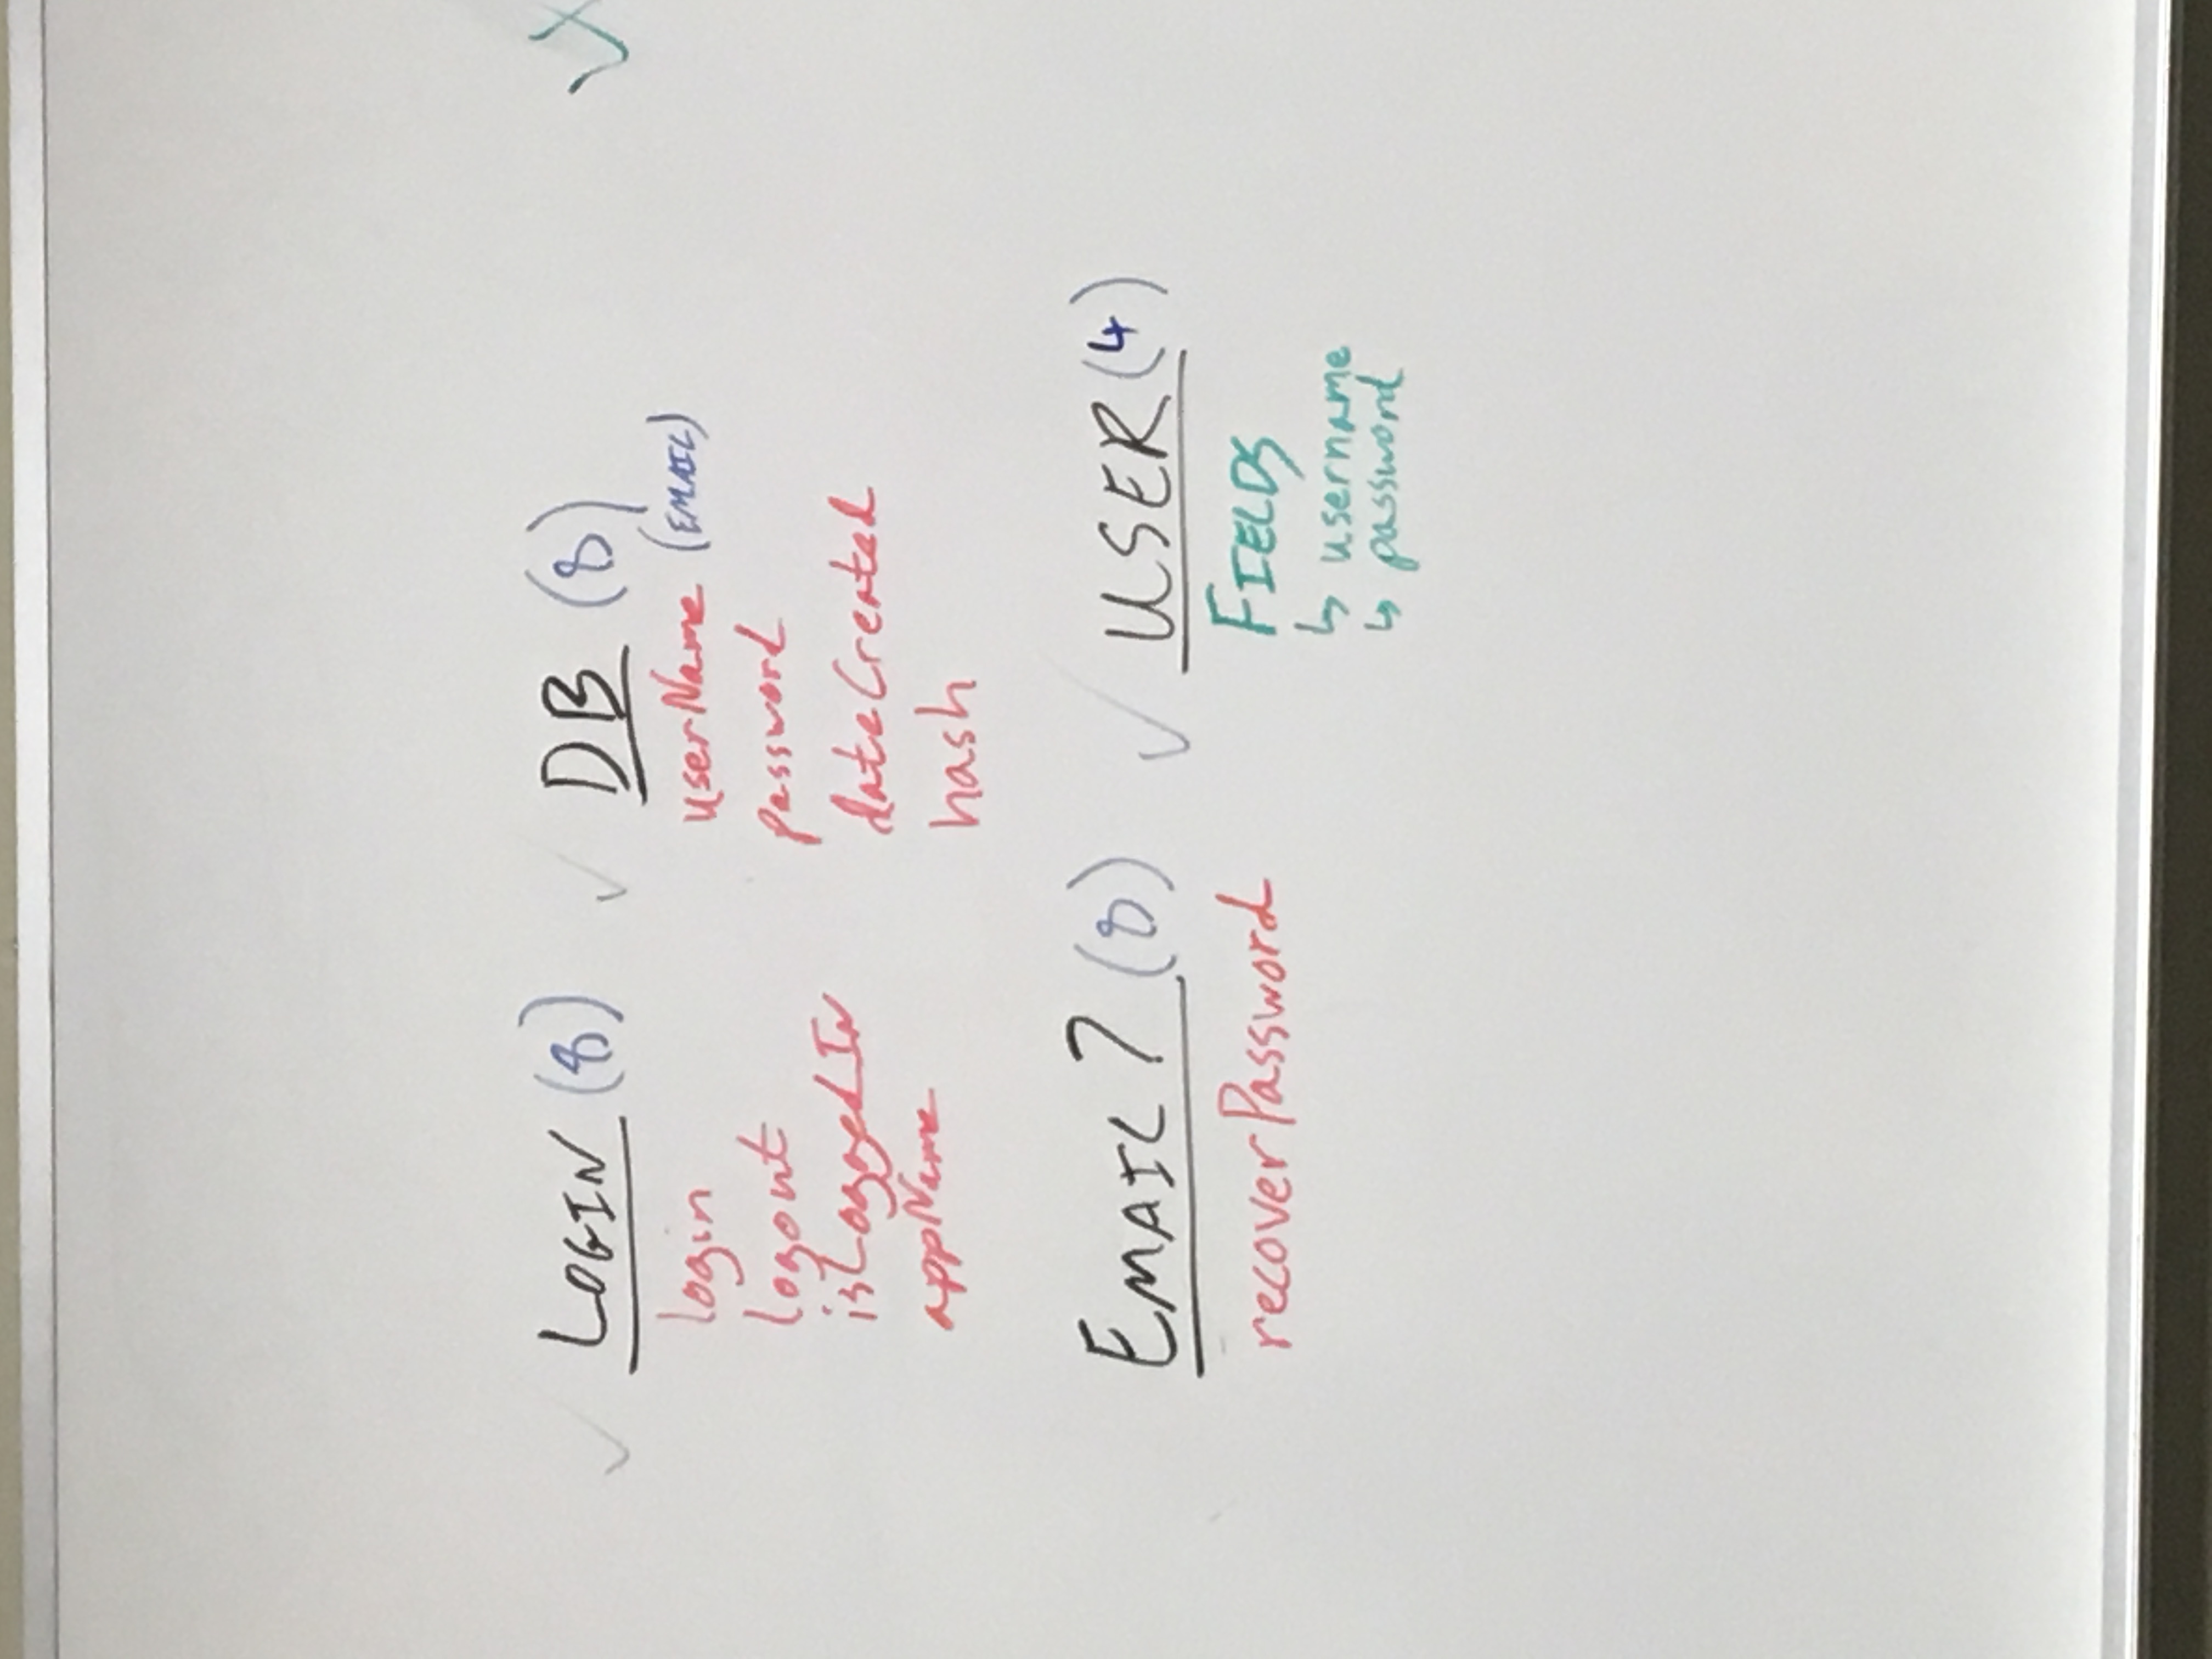 LOGIN (8)
login
logout
isLoggedIn
appName
DB (8)
userName (EMAIL)
password
dateCreated
hash
EMAIL? (8)
recoverPassword
USER (4)
FIELDS
↳ username
↳ password